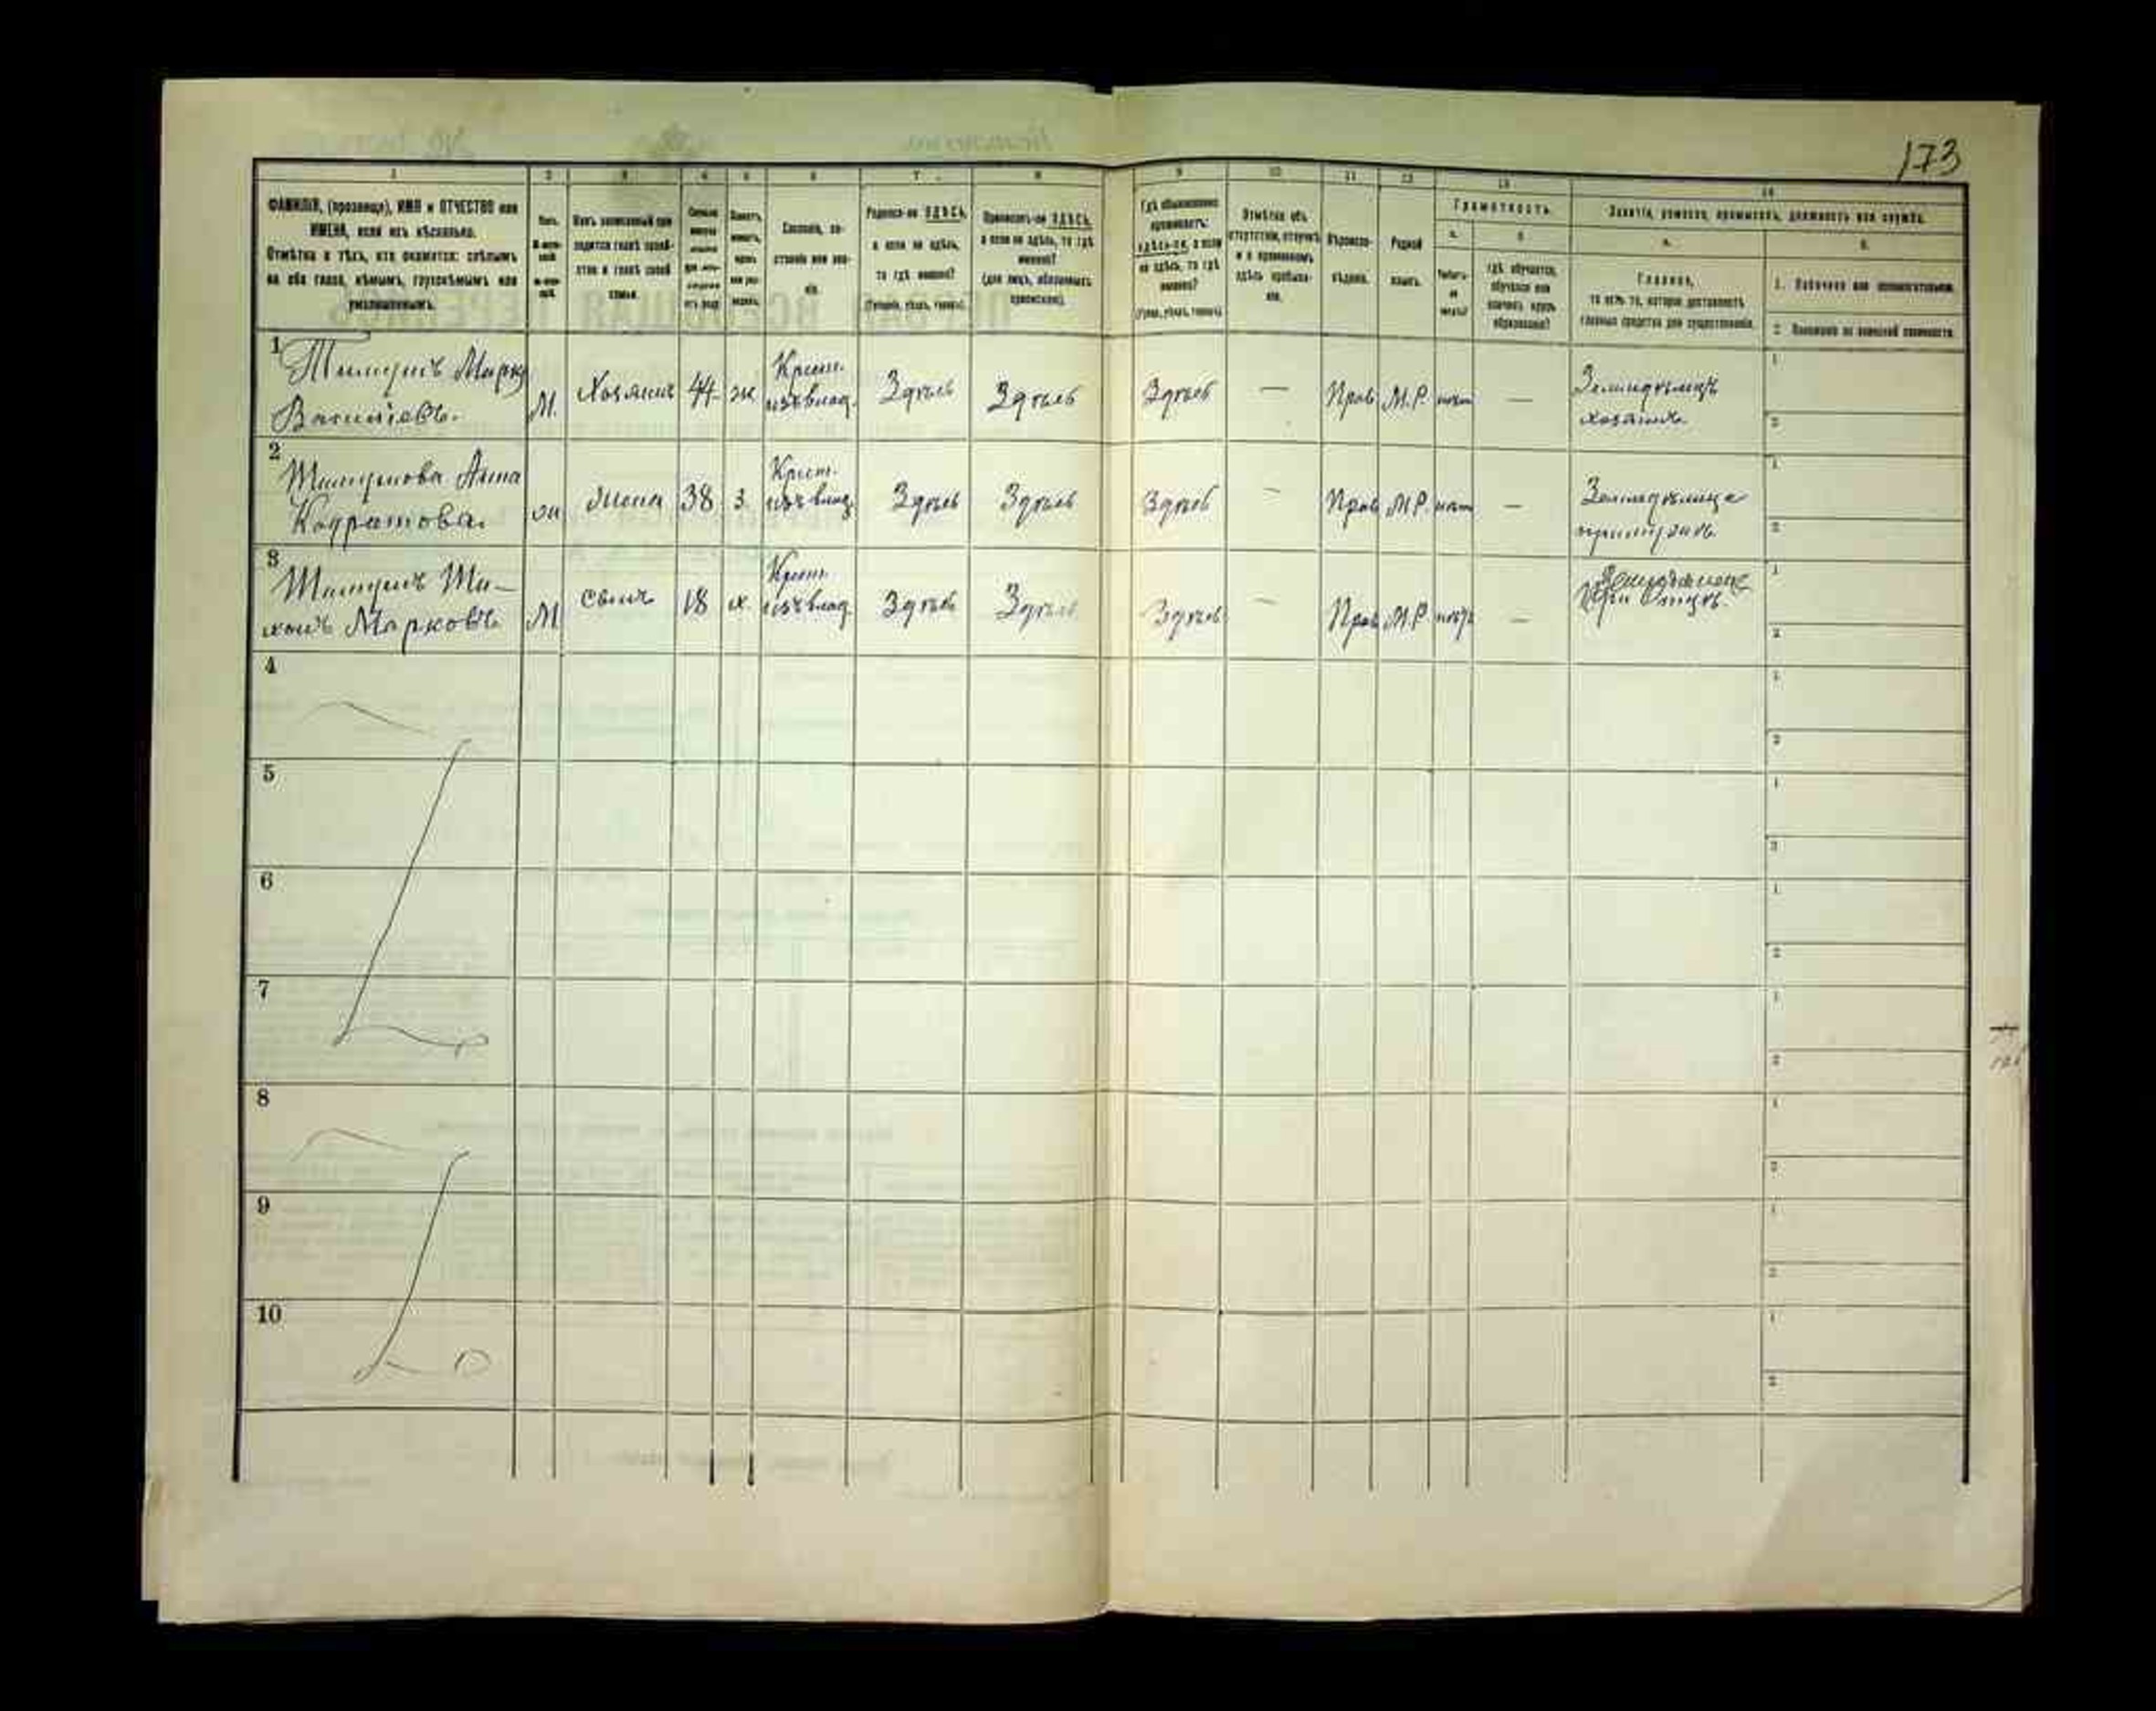 173
1 2 3 4 5 6 7 8 9 10 11 12 13 14
ФАМИЛІЯ, (прозвище), ИМЯ и ОТЧЕСТВО или
ИМЕНА, если ихъ нѣсколько.
Отмѣтка о тѣхъ, кто окажется: слѣпымъ
на оба глаза, нѣмымъ, глухонѣмымъ или
умалишеннымъ.
Полъ.
Какъ записанный при-
ходится главѣ хозяй-
ства и главѣ своей
семьи.
Сословіе, со-
стояніе или зва-
ніе.
Родился-ли ЗДѢСЬ,
а если не здѣсь,
то гдѣ именно?
(Губернія, уѣздъ, городъ).
Приписанъ-ли ЗДѢСЬ,
а если не здѣсь, то гдѣ
именно?
(для лицъ, обязанныхъ
припискою).
Гдѣ обыкновенно
проживаетъ:
здѣсь-ли, а если
не здѣсь, то гдѣ
именно?
(Губер., уѣздъ, городъ).
Отмѣтка объ
отсутствіи, отлучкѣ
и о временномъ
здѣсь пребыва-
ніи.
Вѣроиспо-
вѣданіе.
Родной
языкъ.
Грамотность.
а. б.
Умѣетъ-
ли
читать?
гдѣ обучается,
обучался или
кончилъ курсъ
образованія?
Занятіе, ремесло, промыселъ, должность или служба.
а. б.
Главное,
то есть то, которое доставляетъ
главныя средства для существованія.
1. Побочное или вспомогательное.
2. Положеніе по воинской повинности.
1
Марко
Васильевъ.
М. Хозяинъ 44 ж Крест. изъ влад. Здѣсь Здѣсь Здѣсь — Прав М.Р. нѣт — Земледѣлецъ
хозяинъ
1
2
2
Анна
Кодратова.
ж Жена 38 з. Крест. изъ влад. Здѣсь Здѣсь Здѣсь — Прав М.Р. нѣт — Земледѣлица
при мужѣ
1
2
3
Ти-
хонъ Марковъ
М Сынъ 18 х. Крест. изъ влад. Здѣсь Здѣсь Здѣсь — Прав М.Р. нѣтъ — Земледѣлецъ
При Отцѣ.
1
2
4
1
2
5
1
2
6
1
2
7
1
2
8
1
2
9
1
2
10
1
2